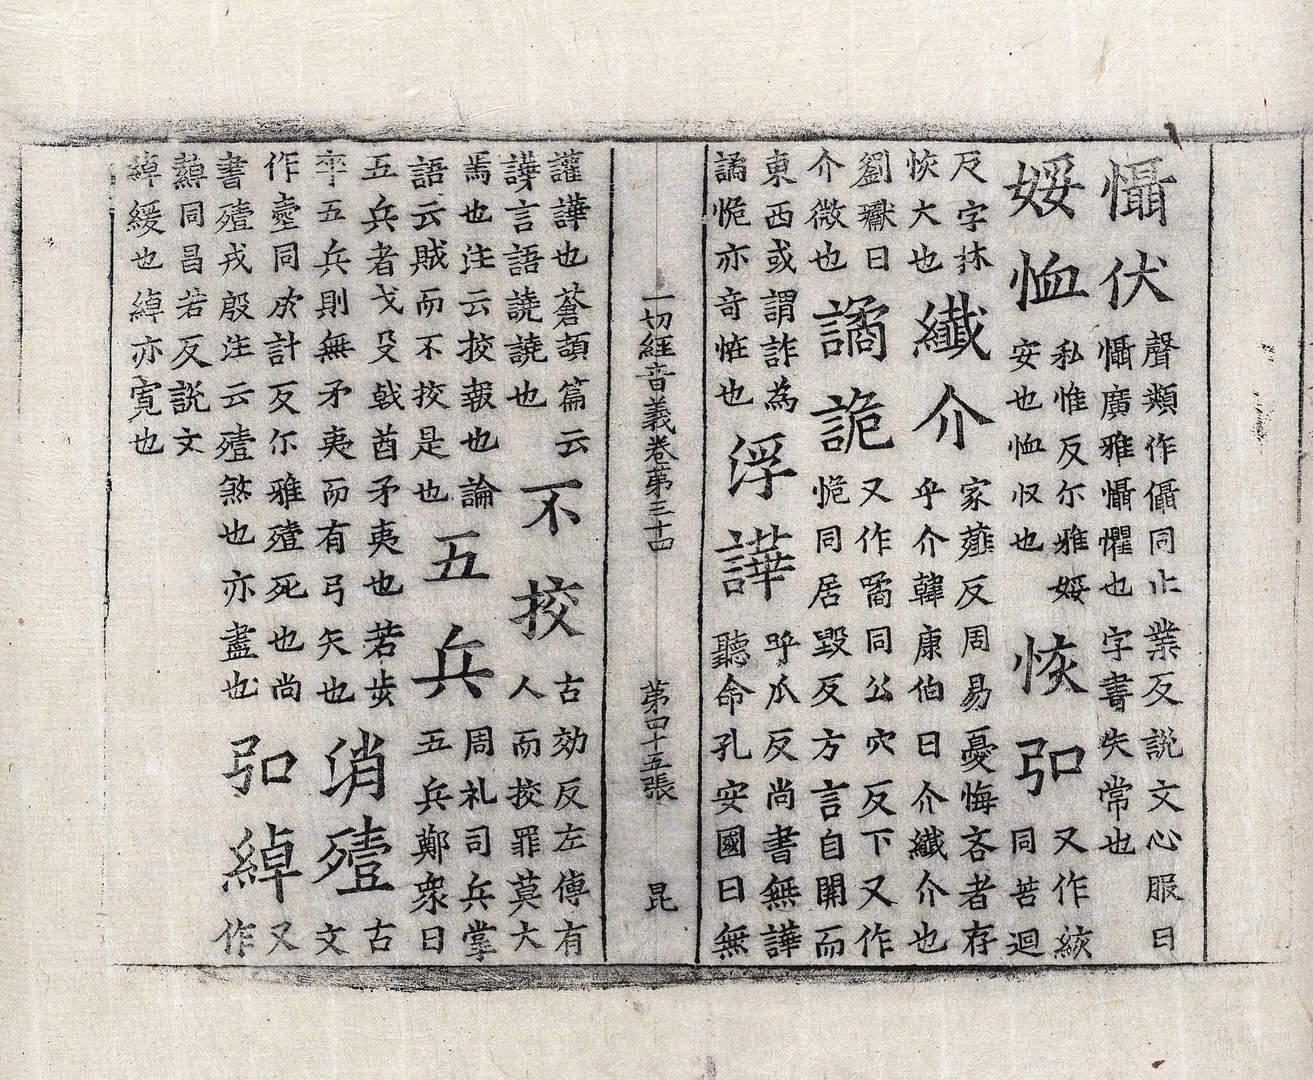 懾伏 聲類作㒤同止業反說文心服曰懾廣雅懾懼也字書失常也
娞恤 私惟反尒雅娞安也恤収也 恢弘 又作㤥同苦迴
反字林恢大也 纖介 家薤反周易憂悔吝者存乎介韓康伯曰介纖介也
劉瓛曰介微也 譎詭 又作噊同公穴反下又作恑同居毀反方言自關而
東西或謂詐為譎恑亦竒恠也 浮譁 呼瓜反尚書無譁聽命孔安國曰無
一切經音義卷第三十四 第四十五張 昆
讙譁也蒼頡篇云譁言語譊譊也 不挍 古効反左傳有人而挍罪莫大
焉也注云挍報也論語云賊而不挍是也 五兵 周礼司兵掌五兵鄭衆曰
五兵者戈殳戟酋矛夷也若步卒五兵則無矛夷而有弓矢也 消殪 古文
作㙪同於計反尒雅殪死也尚書殪戎殷注云殪煞也亦盡也 弘綽 又作
繛同昌若反說文綽緩也綽亦寬也